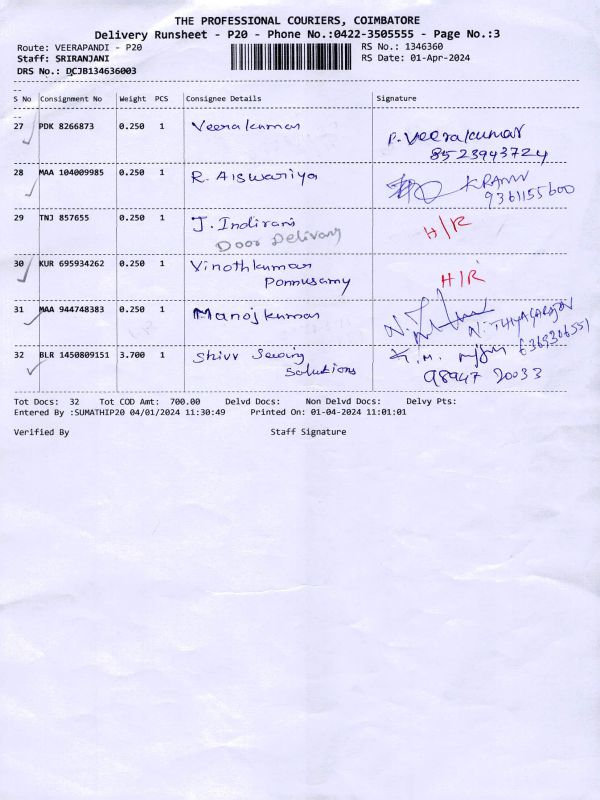 THE PROFESSIONAL COURIERS, COIMBATORE
Delivery Runsheet - P20 - Phone No.:0422-3505555 - Page No.:3
Route: VEERAPANDI - P20 RS No.: 1346360
Staff: SRIRANJANI RS Date: 01-Apr-2024
DRS No.: DCJB134636003
S No Consignment No Weight PCS Consignee Details Signature
27 PDK 8266873 0.250 1 Veerakumar P. Veerakumar
8523943724
28 MAA 104009985 0.250 1 R. Aiswariya
9361155600
29 TNJ 857655 0.250 1 J. Indirani H/R
Door Delivery
30 KUR 695934262 0.250 1 Vinothkumar H/R
Ponnusamy
31 MAA 944748383 0.250 1 Manoj kumar N. THIYAGARAJAN
6369306551
32 BLR 1450809151 3.700 1 Shivv Sewing
Solutions 98947 20033
Tot Docs: 32 Tot COD Amt: 700.00 Delvd Docs: Non Delvd Docs: Delvy Pts:
Entered By :SUMATHIP20 04/01/2024 11:30:49 Printed On: 01-04-2024 11:01:01
Verified By Staff Signature